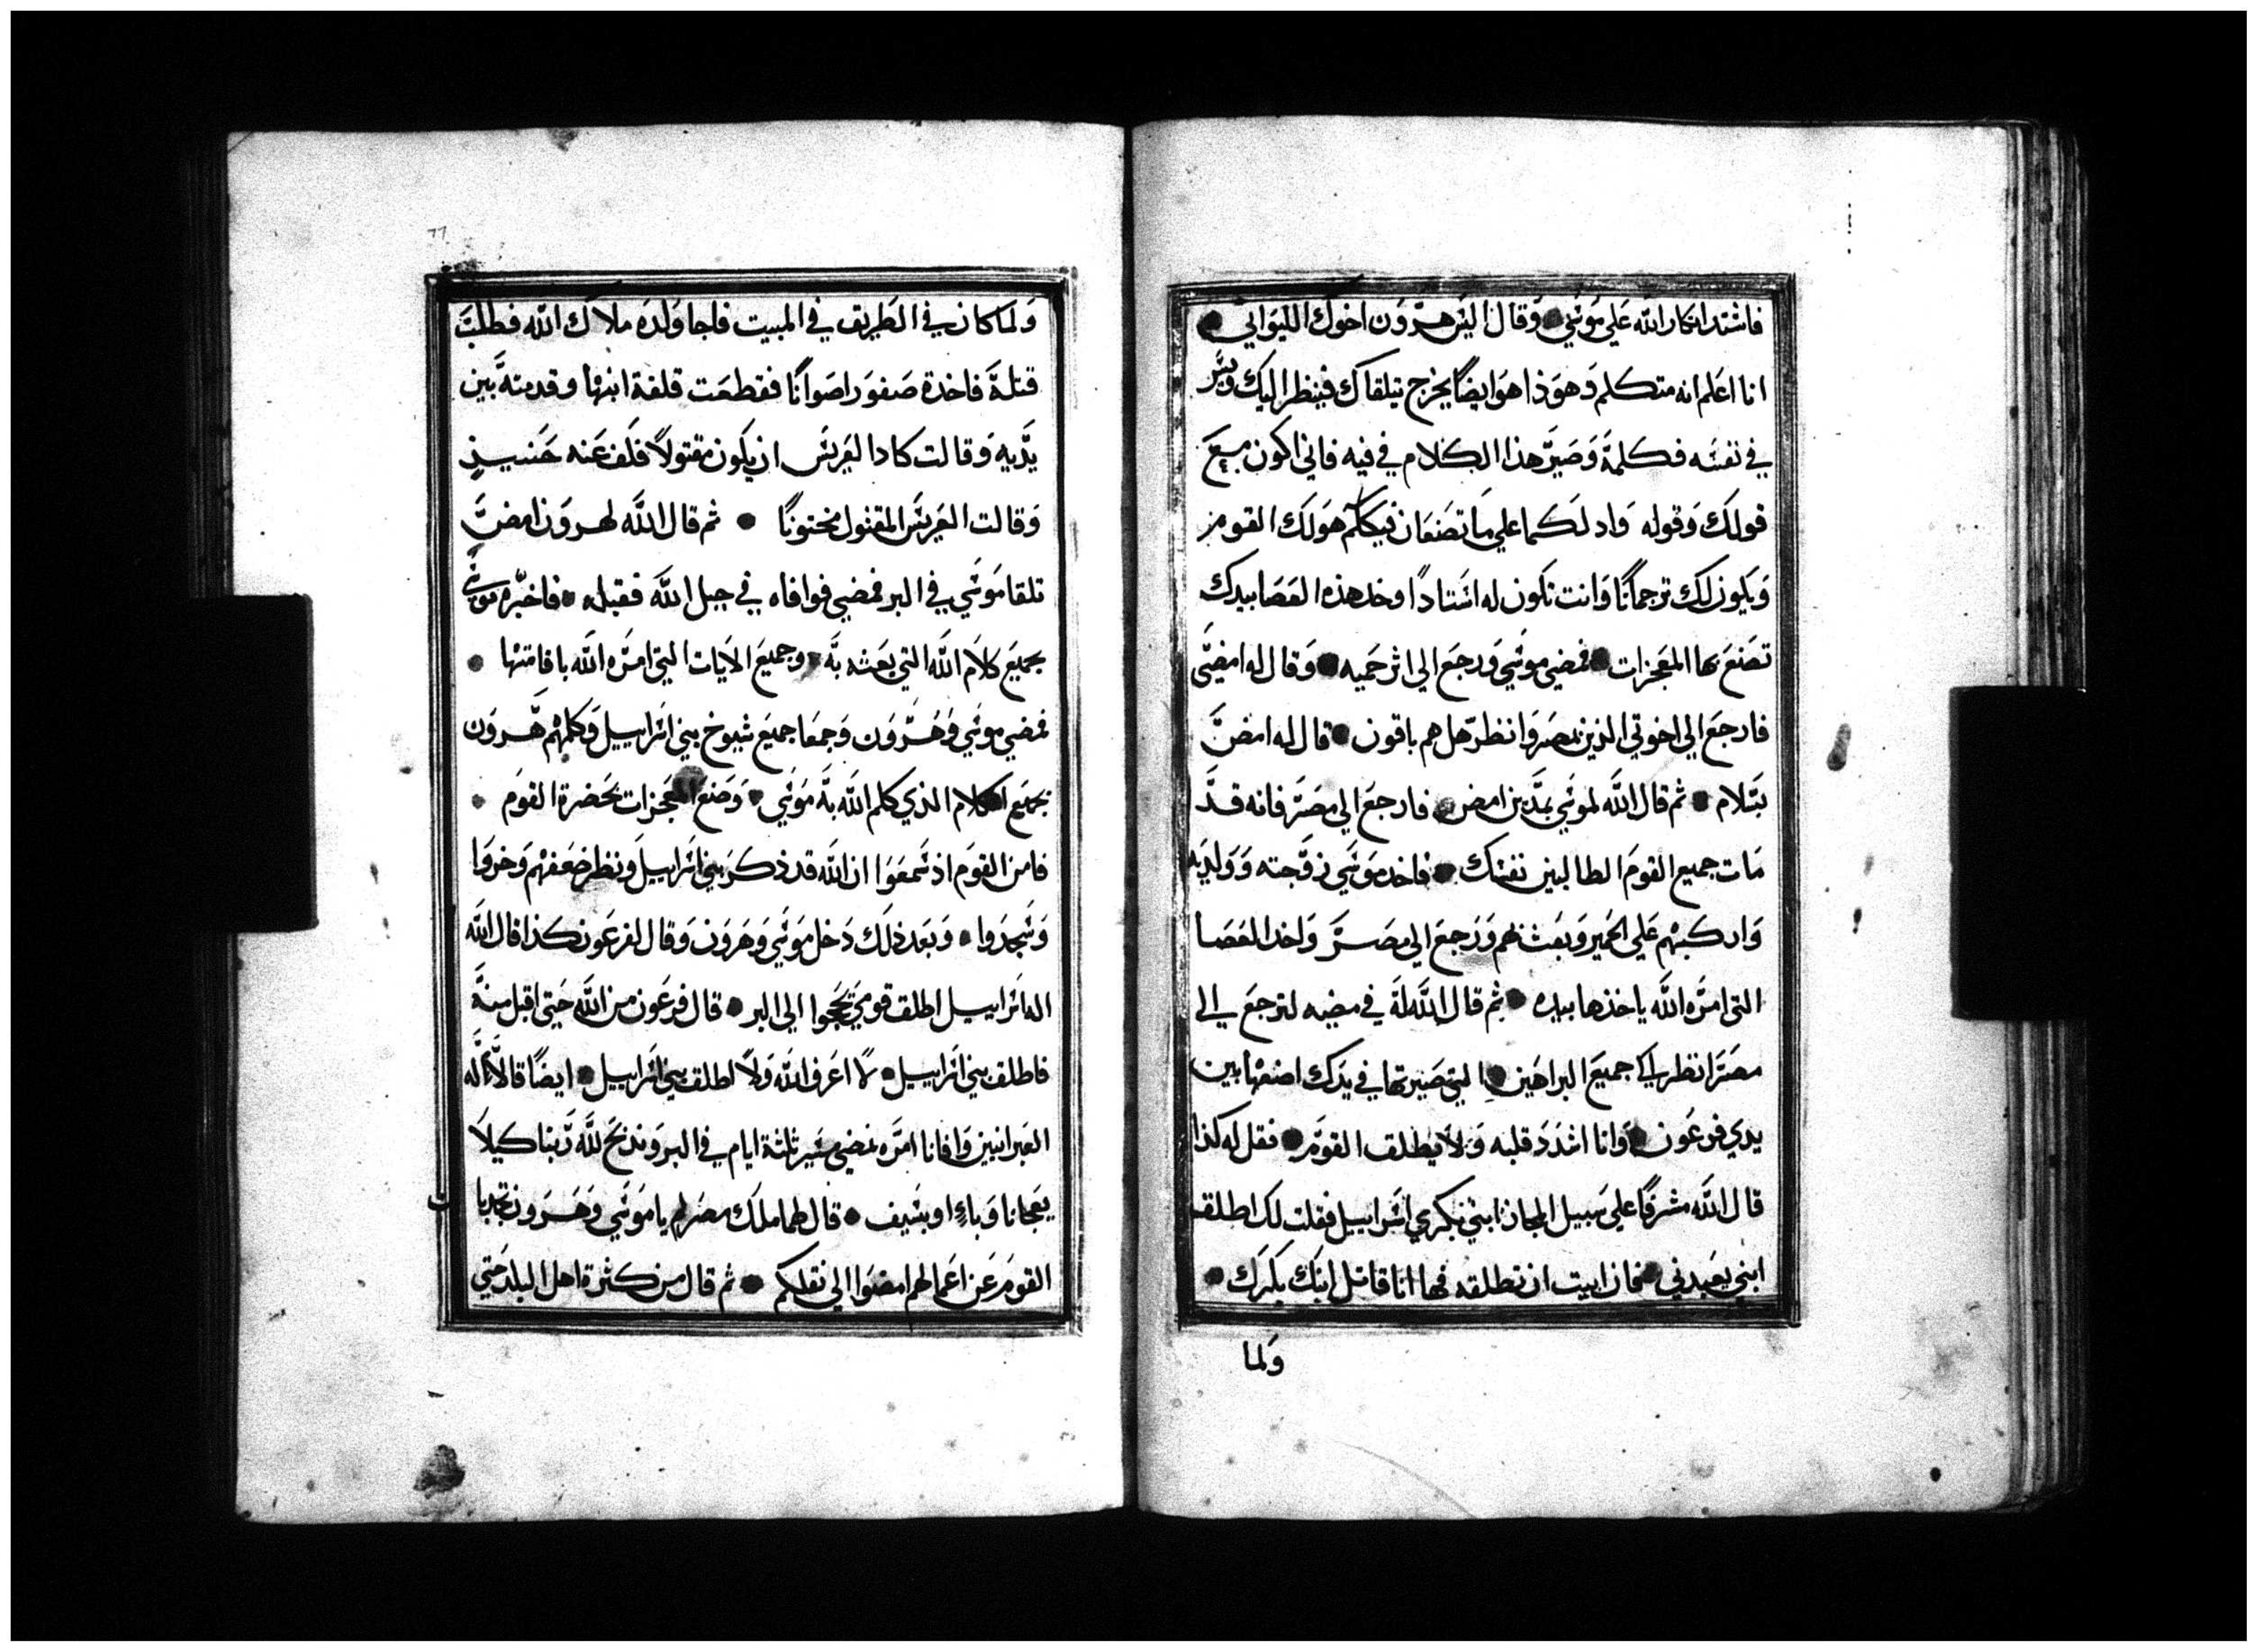 فاشتد انكار الله علي موسي وقال اليس هرون اخوك الليواني
انا اعلم انه متكلم وهوذا هو ايضًا يخرج يتلقاك فينظر اليك ويسر
في نفسه فكلمة وصير هذا الكلام في فيه فاني اكون مع
قولك وقوله وادلكما علي ما تصنعان فيكلم هولك القوم
ويكون لك ترجمانًا وانت تكون له استادًا وخد هذه العصا بيدك
تصنع بها المعجزات فمضي موسي ورجع الي اثر حميه وقال له امضي
فارجع الي اخوتي الذين بمصر وانظر هل هم باقون قال له امض
بسلام ثم قال الله لموسي بمدين امض فارجع الي مصر فانه قد
مات جميع القوم الطالبين نفسك فاخد موسي زوجته وولديه
واركبهم علي الحمير وبعث بهم ورجع الي مصر واخد العصا
التي امره الله ياخذها بيده ثم قال الله له في مضيه لترجع الي
مصر انظر الي جميع البراهين التي صيرتها في يدك اصنعها بين
يدي فرعون وانا اشدد قلبه ولا يطلق القوم فقل له كذا
قال الله مشرفًا علي سبيل المجاز ابني بكري اسراييل فقلت لك اطلق
ابني يعبدني فان ابيت ان تطلقه فها انا قاتل ابنك بكرك
ولما
٦٦
ولما كان في الطريق في المبيت فاجا ولده ملاك الله فطلب
قتلة فاخدة صفورا صوانًا فقطعت قلفة ابنها وقدمته بين
يديه وقالت كاد العريس ان يكون مقتولاً فكف عنه حنيىذٍ
وقالت العريس المقتول مختونًا ثم قال الله لهرون امض
تلقا موسي في البر فمضي فوافاه في جبل الله فقبله فاخبره موسي
بجميع كلام الله التي بعثه به وجميع الايات التي امره الله باقامتها
فمضي موسي وهرون وجمعا جميع شيوخ بني اسراييل وكلمهم هرون
بجميع الكلام الذي كلم الله به موسي وصنع المعجزات بحضرة القوم
فامن القوم اذ سمعوا ان الله قد ذكر بني اسراييل ونظر ضعفهم وخروا
وسجدوا وبعد ذلك دخل موسي وهرون وقال لفرعون كذا قال الله
اله اسراييل اطلق قومي يحجوا الي البر قال فرعون من الله حتي اقبل منه
فاطلق بني اسراييل لا اعرف الله ولا اطلق بني اسراييل ايضًا قالا اله
العبرانيين وافانا امره نمضي سير ثلثة ايام في البر ونذبح لله ربنا كيلا
يفجانا وباءٍ او بسيف قال لهما ملك مصر لم يا موسي وهرون تجدبا
القوم عن اعمالهم امضوا الي نقلكم ثم قال من كثرة اهل البلد حتي